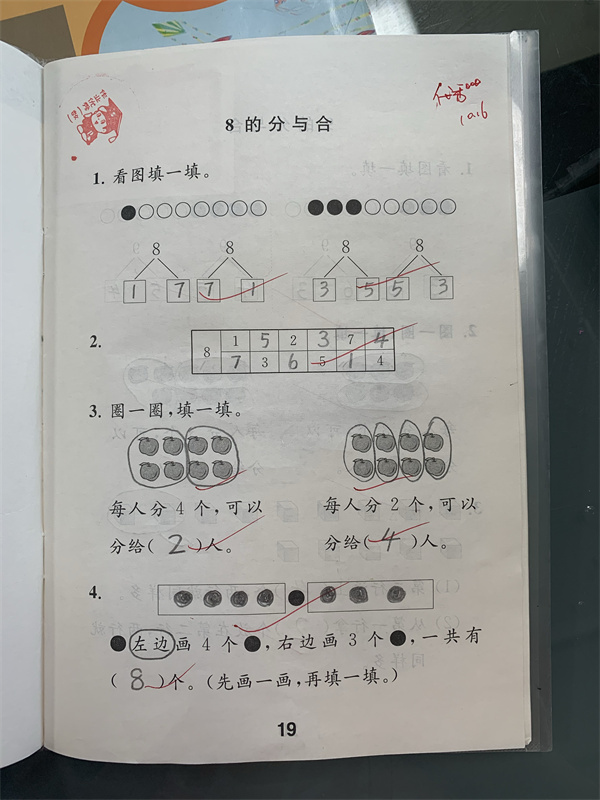 10.16
8 的 分 与 合
1. 看图填一填。
8 8 8 8
1 7 7 1 3 5 5 3
2.
8 1 5 2 3 7 4
7 3 6 5 1 4
3. 圈一圈,填一填。
每人分 4 个,可以
分给( 2 )人。
每人分 2 个,可以
分给( 4 )人。
4.
●左边画 4 个 ●,右边画 3 个 ●,一共有
( 8 )个。(先画一画,再填一填。)
19